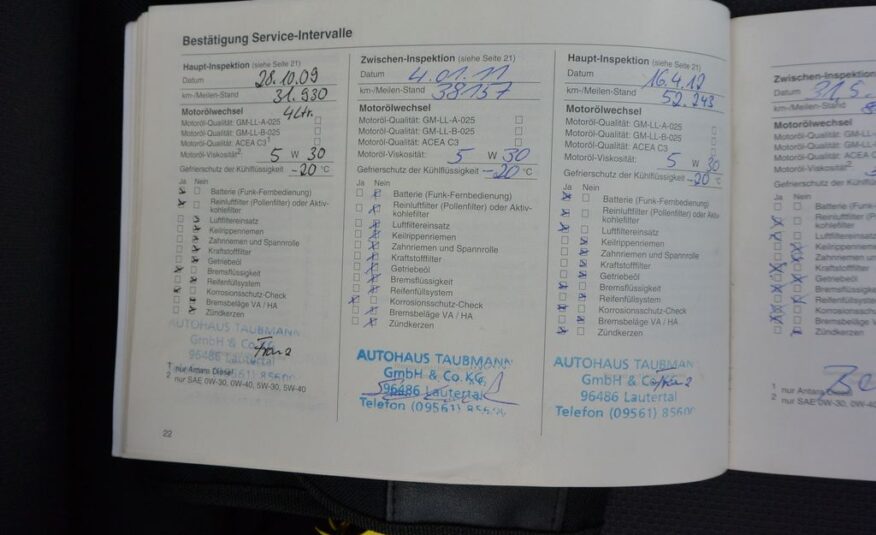 Bestätigung Service-Intervalle
Haupt-Inspektion (siehe Seite 21)
Datum 28.10.09
km-/Meilen-Stand 31.930
Motorölwechsel 4 Ltr.
Motoröl-Qualität: GM-LL-A-025
Motoröl-Qualität: GM-LL-B-025
Motoröl-Qualität: ACEA C3¹
Motoröl-Viskosität²: 5 W 30
Gefrierschutz der Kühlflüssigkeit -20 °C
Ja Nein
Batterie (Funk-Fernbedienung)
Reinluftfilter (Pollenfilter) oder Aktiv-
kohlefilter
Luftfiltereinsatz
Keilrippenriemen
Zahnriemen und Spannrolle
Kraftstofffilter
Getriebeöl
Bremsflüssigkeit
Reifenfüllsystem
Korrosionsschutz-Check
Bremsbeläge VA / HA
Zündkerzen
AUTOHAUS TAUBMANN
GmbH & Co. KG
96486 Lautertal
1 nur Antara Diesel
2 nur SAE 0W-30, 0W-40, 5W-30, 5W-40
22
Zwischen-Inspektion (siehe Seite 21)
Datum 4.01.11
km-/Meilen-Stand 38157
Motorölwechsel
Motoröl-Qualität: GM-LL-A-025
Motoröl-Qualität: GM-LL-B-025
Motoröl-Qualität: ACEA C3
Motoröl-Viskosität: 5 W 30
Gefrierschutz der Kühlflüssigkeit -20 °C
Ja Nein
Batterie (Funk-Fernbedienung)
Reinluftfilter (Pollenfilter) oder Aktiv-
kohlefilter
Luftfiltereinsatz
Keilrippenriemen
Zahnriemen und Spannrolle
Kraftstofffilter
Getriebeöl
Bremsflüssigkeit
Reifenfüllsystem
Korrosionsschutz-Check
Bremsbeläge VA / HA
Zündkerzen
AUTOHAUS TAUBMANN
GmbH & Co. KG
96486 Lautertal
Telefon (09561) 85600
Haupt-Inspektion (siehe Seite 21)
Datum 16.4.12
km-/Meilen-Stand 52.243
Motorölwechsel
Motoröl-Qualität: GM-LL-A-025
Motoröl-Qualität: GM-LL-B-025
Motoröl-Qualität: ACEA C3
Motoröl-Viskosität: 5 W 30
Gefrierschutz der Kühlflüssigkeit -20 °C
Ja Nein
Batterie (Funk-Fernbedienung)
Reinluftfilter (Pollenfilter) oder Aktiv-
kohlefilter
Luftfiltereinsatz
Keilrippenriemen
Zahnriemen und Spannrolle
Kraftstofffilter
Getriebeöl
Bremsflüssigkeit
Reifenfüllsystem
Korrosionsschutz-Check
Bremsbeläge VA / HA
Zündkerzen
AUTOHAUS TAUBMANN
GmbH & Co. KG
96486 Lautertal
Telefon (09561) 85600
Zwischen-Inspektion
Datum
km-/Meilen-Stand
Motorölwechsel
Motoröl-Qualität: GM-LL-
Motoröl-Qualität: GM-LL-
Motoröl-Qualität: ACEA
Motoröl-Viskosität²
Gefrierschutz der Kühlflüssi
Ja Nein
Batterie (Funk-
Reinluftfilter (P
kohlefilter
Luftfiltereinsatz
Keilrippenriemen
Zahnriemen un
Kraftstofffilter
Getriebeöl
Bremsflüssigkei
Reifenfüllsystem
Korrosionsschu
Bremsbeläge VA
Zündkerzen
1 nur Antara
2 nur SAE 0W-30, 0W-40